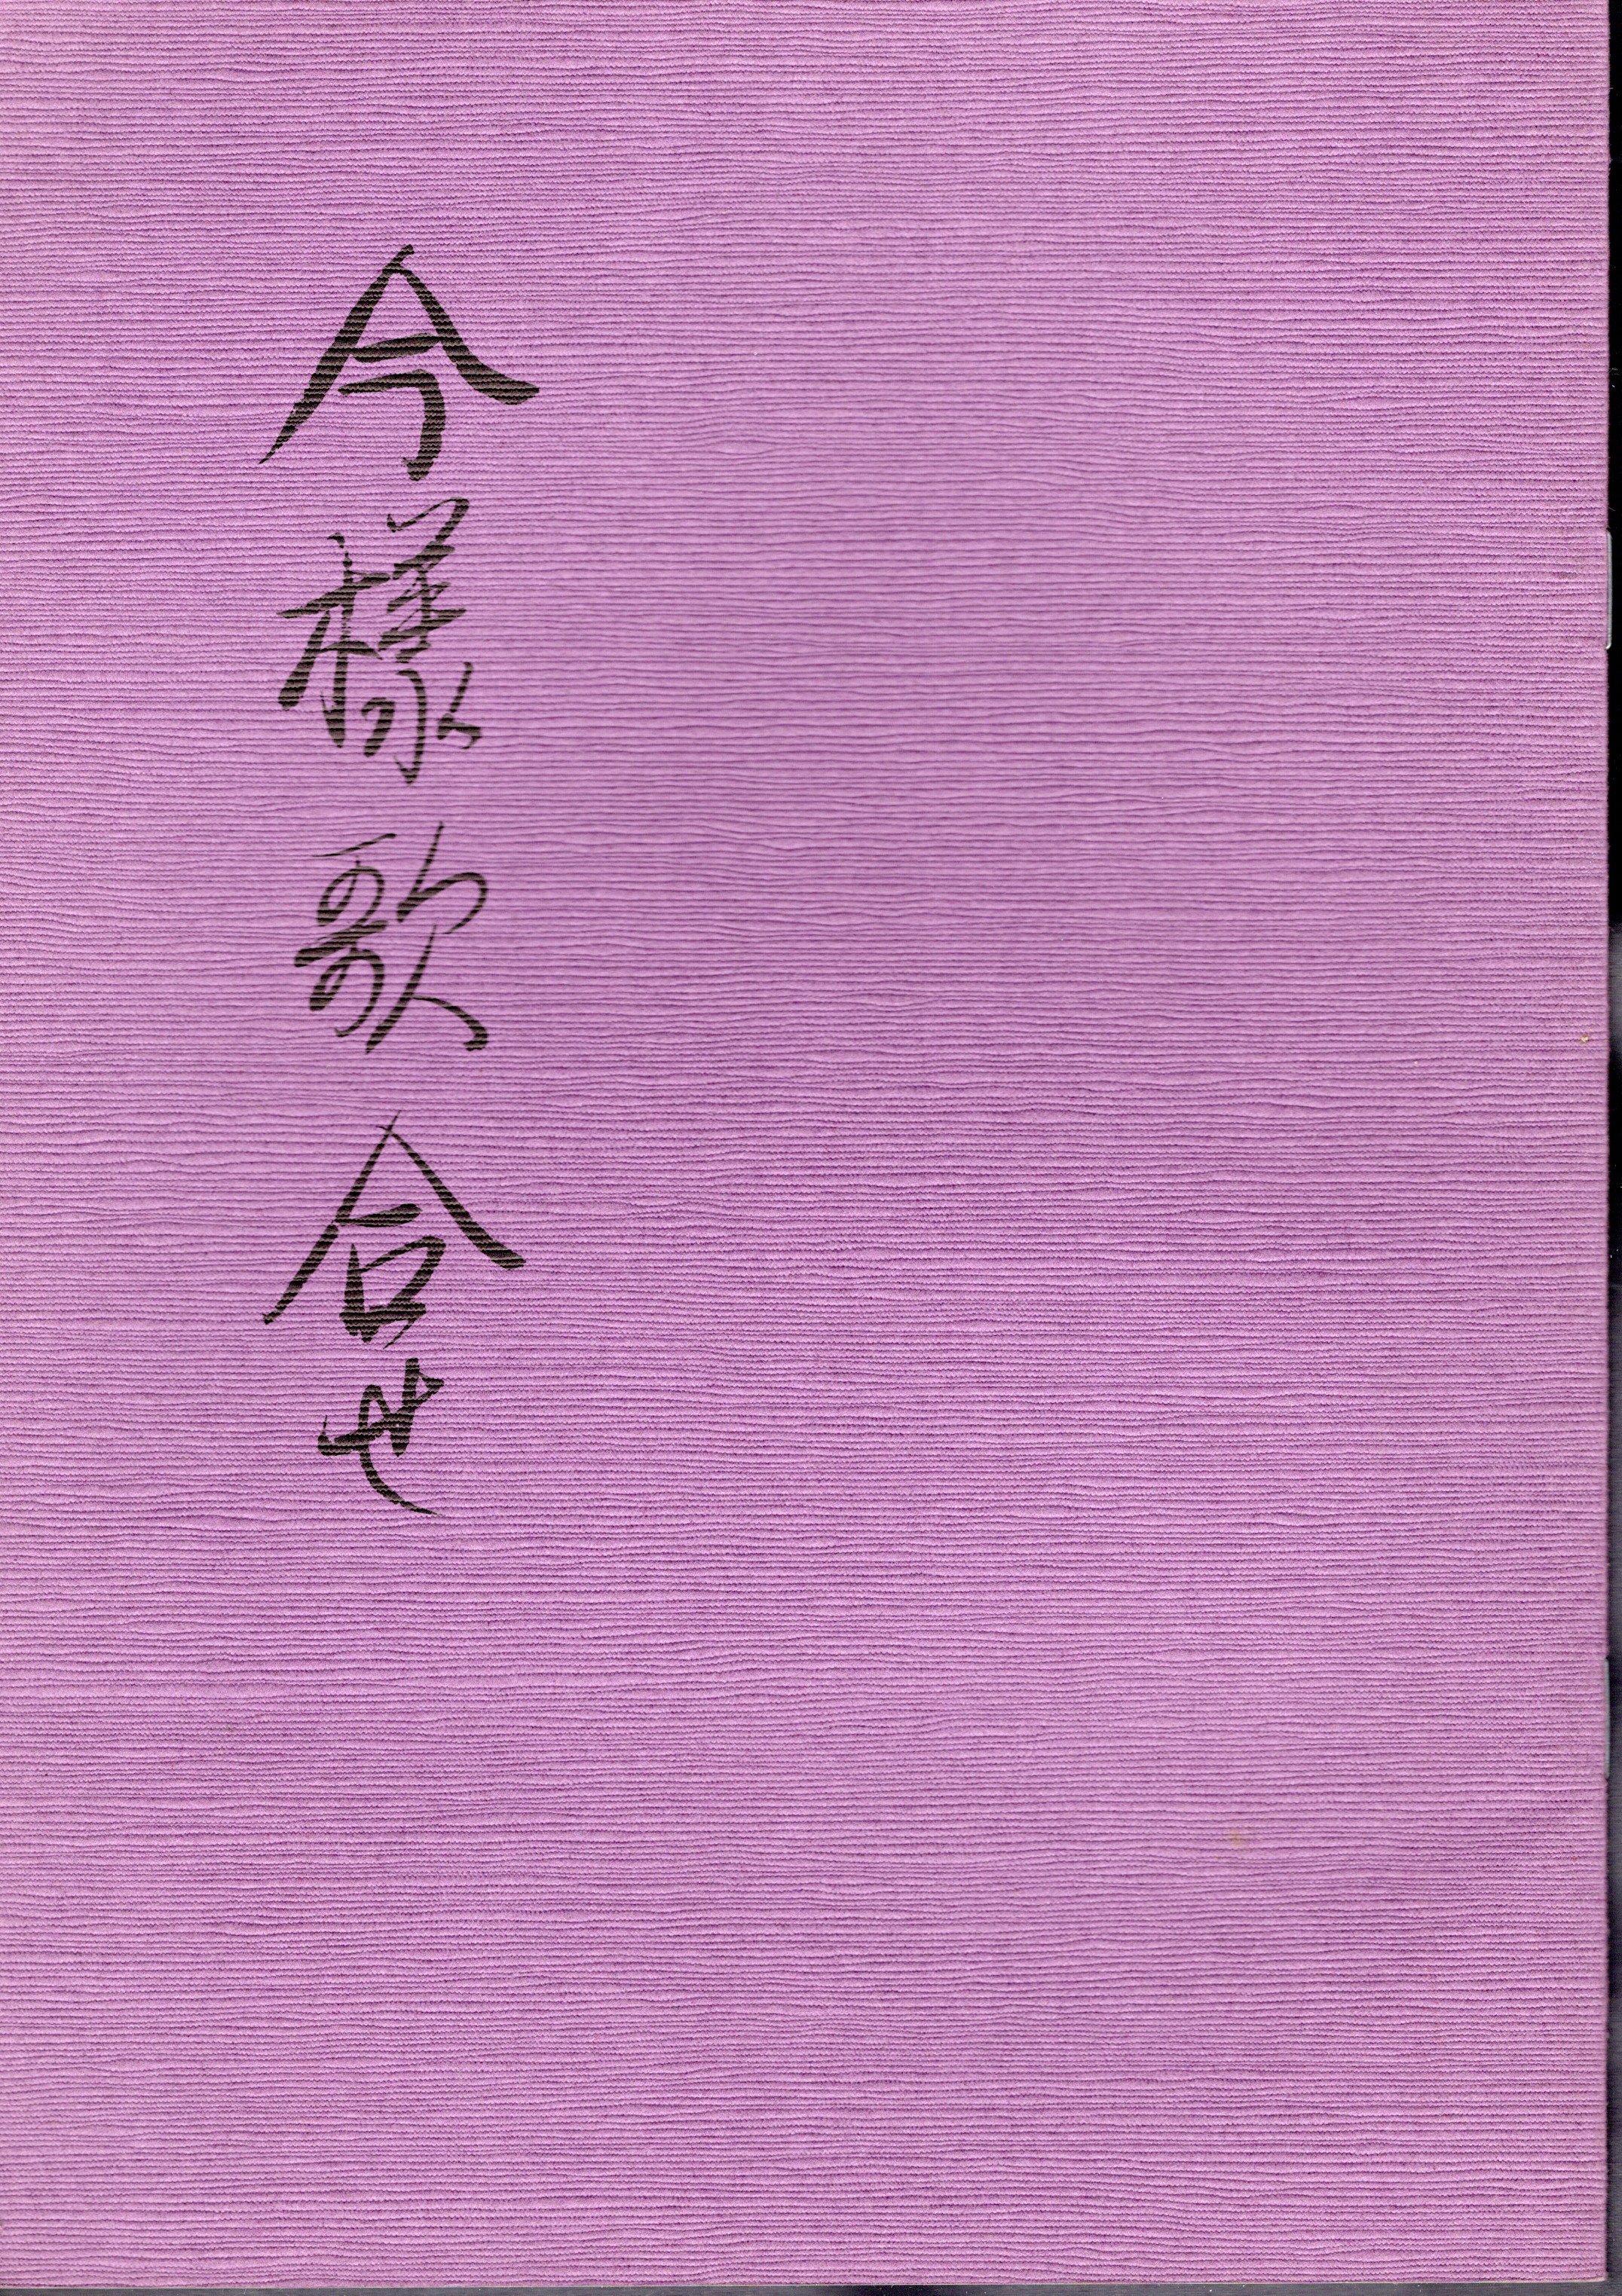 今様歌合せ